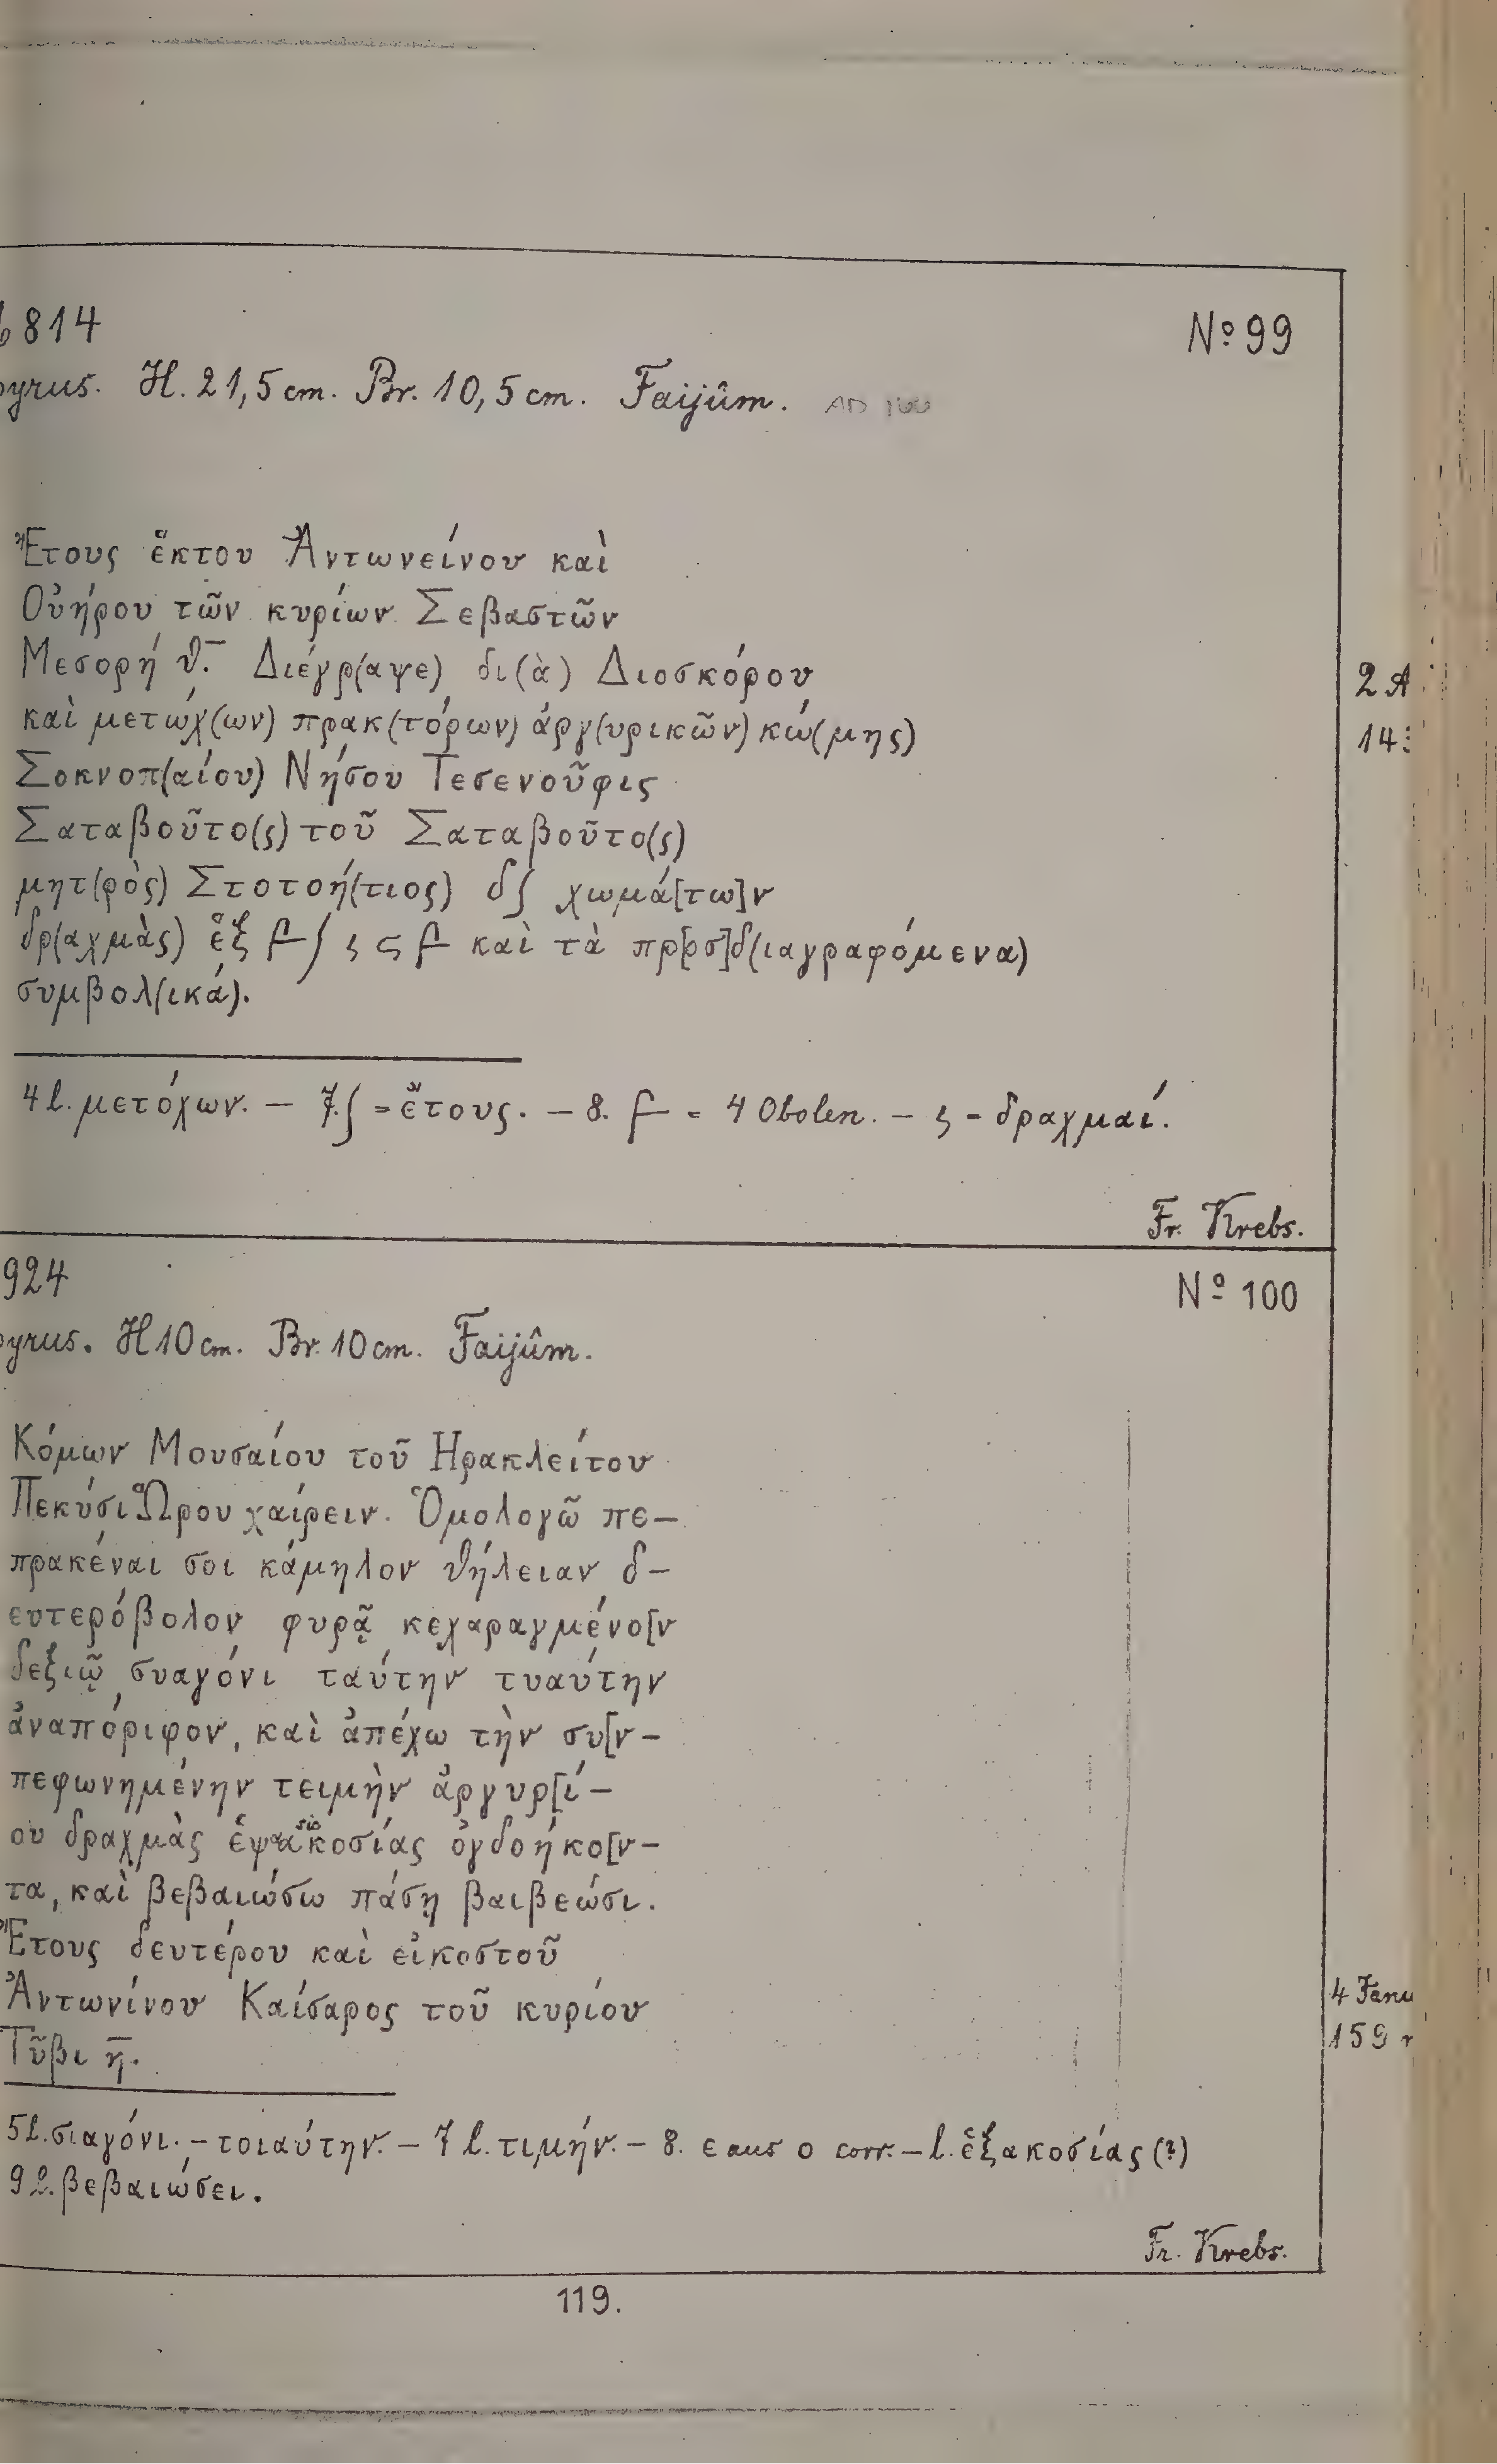 6814
Nº 99
pyrus. H. 21,5 cm. Br. 10,5 cm. Faijûm.
Ἔτους ἕκτου Ἀντωνείνου καὶ
Οὐήρου τῶν κυρίων Σεβαστῶν
Μεσορή θ̅. Διέγρ(αψε) δι(ὰ) Διοσκόρου
2 A
καὶ μετώχ(ων) πρακ(τόρων) ἀργ(υρικῶν) κώ(μης)
143
Σοκνοπ(αίου) Νήσου Τεσενοῦφις
Σαταβοῦτο(ς) τοῦ Σαταβοῦτο(ς)
μητ(ρὸς) Στοτοή(τιος) δ∫ χωμά[τω]ν
δρ(αχμὰς) ἓξ ϝ/ ϛ ϝ καὶ τὰ πρ[οσ]δ(ιαγραφόμενα)
συμβολ(ικά).
4 l. μετόχων. — 7. ∫ = ἔτους. — 8. ϝ = 4 Obolen. — ϛ = δραχμαί.
Fr. Krebs.
924
Nº 100
pyrus. H 10 cm. Br. 10 cm. Faijûm.
Κόμων Μουσαίου τοῦ Ηρακλείτου
Πεκύσι Ὥρου χαίρειν. Ὁμολογῶ πε—
πρακέναι σοι κάμηλον θήλειαν δ—
ευτερόβολον φυρᾷ κεχαραγμένο[ν
δεξιῷ συαγόνι ταύτην τυαύτην
ἀναπόριφον, καὶ ἀπέχω τὴν συ[ν—
πεφωνημένην τειμὴν ἀργυρ[ί—
ου δραχμὰς ὀγδοήκο[ν—
τα, καὶ βεβαιώσω πάσῃ βαιβεώσι.
Ἔτους δευτέρου καὶ εἰκοστοῦ
Ἀντωνίνου Καίσαρος τοῦ κυρίου
4 Janu
Τῦβι η̅.
159 n
5 l. σιαγόνι. — τοιαύτην. — 7 l. τιμήν. — 8. ε aus ο corr. — l. ἑξακοσίας (?)
9 l. βεβαιώσει.
Fr. Krebs.
119.